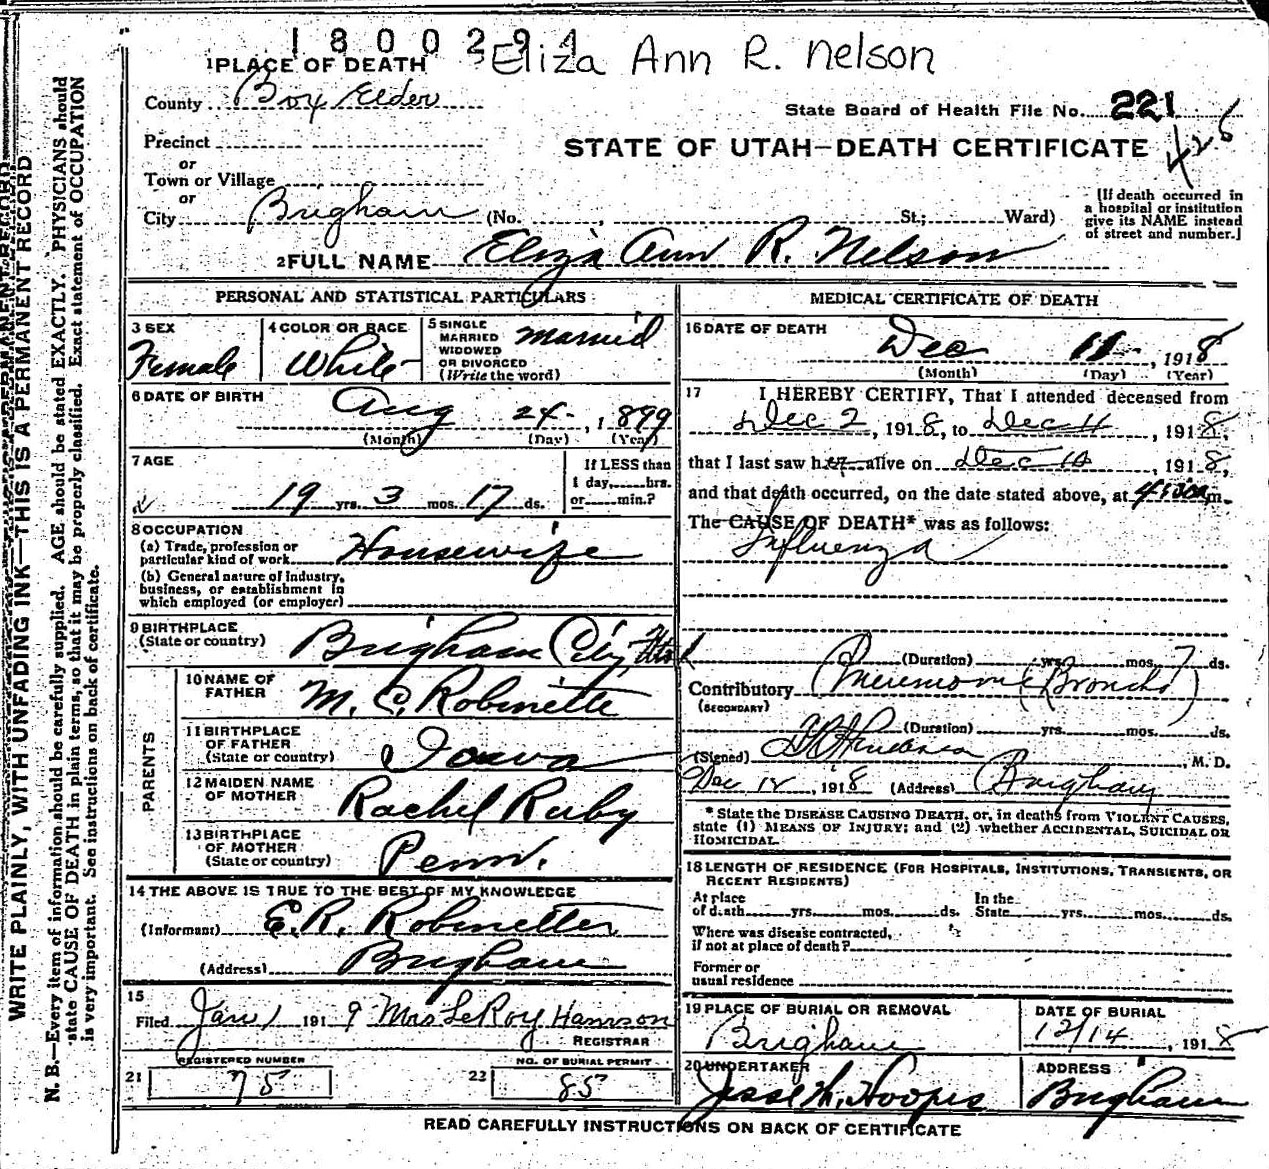 1800291
Eliza Ann R. Nelson
1 PLACE OF DEATH
County Box Elder
State Board of Health File No. 221
426
Precinct
or
STATE OF UTAH—DEATH CERTIFICATE
Town or Village
or
City Brigham (No. , St.; Ward)
[If death occurred in
a hospital or institution
give its NAME instead
of street and number.]
2 FULL NAME Eliza Ann R. Nelson
PERSONAL AND STATISTICAL PARTICULARS
3 SEX
Female
4 COLOR OR RACE
White
5 SINGLE
MARRIED
WIDOWED
OR DIVORCED
(Write the word)
Married
6 DATE OF BIRTH
Aug 24 , 1899
(Month) (Day) (Year)
7 AGE
19 yrs. 3 mos. 17 ds.
If LESS than
1 day, hrs.
or min.?
8 OCCUPATION
(a) Trade, profession or
particular kind of work Housewife
(b) General nature of industry,
business, or establishment in
which employed (or employer)
9 BIRTHPLACE
(State or country)
Brigham City Utah
PARENTS
10 NAME OF
FATHER
M. C. Robinette
11 BIRTHPLACE
OF FATHER
(State or country)
Iowa
12 MAIDEN NAME
OF MOTHER
Rachel Ruby
13 BIRTHPLACE
OF MOTHER
(State or country)
Penn.
14 THE ABOVE IS TRUE TO THE BEST OF MY KNOWLEDGE
(Informant) E. R. Robinetter
(Address) Brigham
15
Filed Jan 1 1919 Mrs LeRoy Harrison
REGISTRAR
REGISTERED NUMBER
21 75
NO. OF BURIAL PERMIT
22 85
MEDICAL CERTIFICATE OF DEATH
16 DATE OF DEATH
Dec 11 , 1918
(Month) (Day) (Year)
17 I HEREBY CERTIFY, That I attended deceased from
Dec 2 , 1918, to Dec 11 , 1918,
that I last saw her alive on Dec 10 , 1918,
and that death occurred, on the date stated above, at m.
The CAUSE OF DEATH* was as follows:
Influenza
(Duration) yrs. mos. 7 ds.
Contributory Pneumonia (Broncho)
(SECONDARY)
(Duration) yrs. mos. ds.
(Signed) , M. D.
Dec 12 , 1918 (Address) Brigham
* State the DISEASE CAUSING DEATH, or, in deaths from VIOLENT CAUSES,
state (1) MEANS OF INJURY; and (2) whether ACCIDENTAL, SUICIDAL OR
HOMICIDAL.
18 LENGTH OF RESIDENCE (FOR HOSPITALS, INSTITUTIONS, TRANSIENTS, OR
RECENT RESIDENTS)
At place
of death yrs. mos. ds.
In the
State yrs. mos. ds.
Where was disease contracted,
if not at place of death?
Former or
usual residence
19 PLACE OF BURIAL OR REMOVAL
Brigham
DATE OF BURIAL
12/14 , 1918
20 UNDERTAKER
Jesse W. Hoopes
ADDRESS
Brigham
READ CAREFULLY INSTRUCTIONS ON BACK OF CERTIFICATE
WRITE PLAINLY, WITH UNFADING INK—THIS IS A PERMANENT RECORD
N. B.—Every item of information should be carefully supplied. AGE should be stated EXACTLY. PHYSICIANS should
state CAUSE OF DEATH in plain terms, so that it may be properly classified. Exact statement of OCCUPATION
is very important. See instructions on back of certificate.